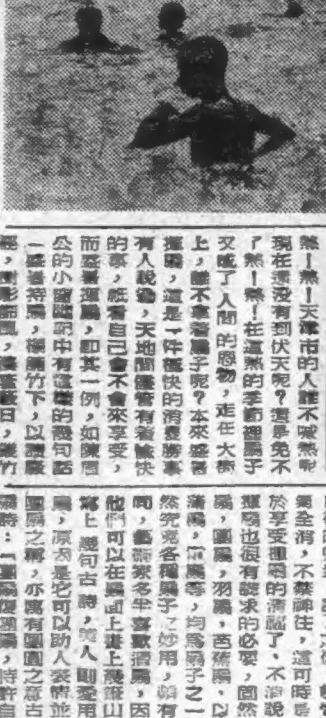 熱!熱!天津市的人誰不喊熱呢
現在還沒有到伏天呢?還是免不
了熱!熱!在這熱的季節裡扇子
又成了人間的恩物,走在大街
上,誰不拿着扇子呢?本來盛暑
揮扇,這是一件極快的消夏勝事
有人說過,天地間儘管有着愉快
的事,祗看自己會不會來享受,
而盛暑揮扇,即其一例,如陳眉
公的小窗幽記中有這樣的幾句話
盛暑持扇,竹下,以讀
影風,日,竹
全消,不禁神往,這可
於享受揮扇的清福了,不消說
揮扇也很有講求的必要,固然
扇,團扇,羽扇,芭蕉扇,以
蒲扇,扇等,均為扇子之一
然究竟各種扇子之妙用,頗有
同,藝術家多半喜歡摺扇,因
他們可以在扇面上畫上幾筆山
寫上幾句古詩,美人則愛用
扇,原因是它可以助人表情並
團扇之稱,亦寓有團圓之意古
扇詩:「團扇復團扇,時許自